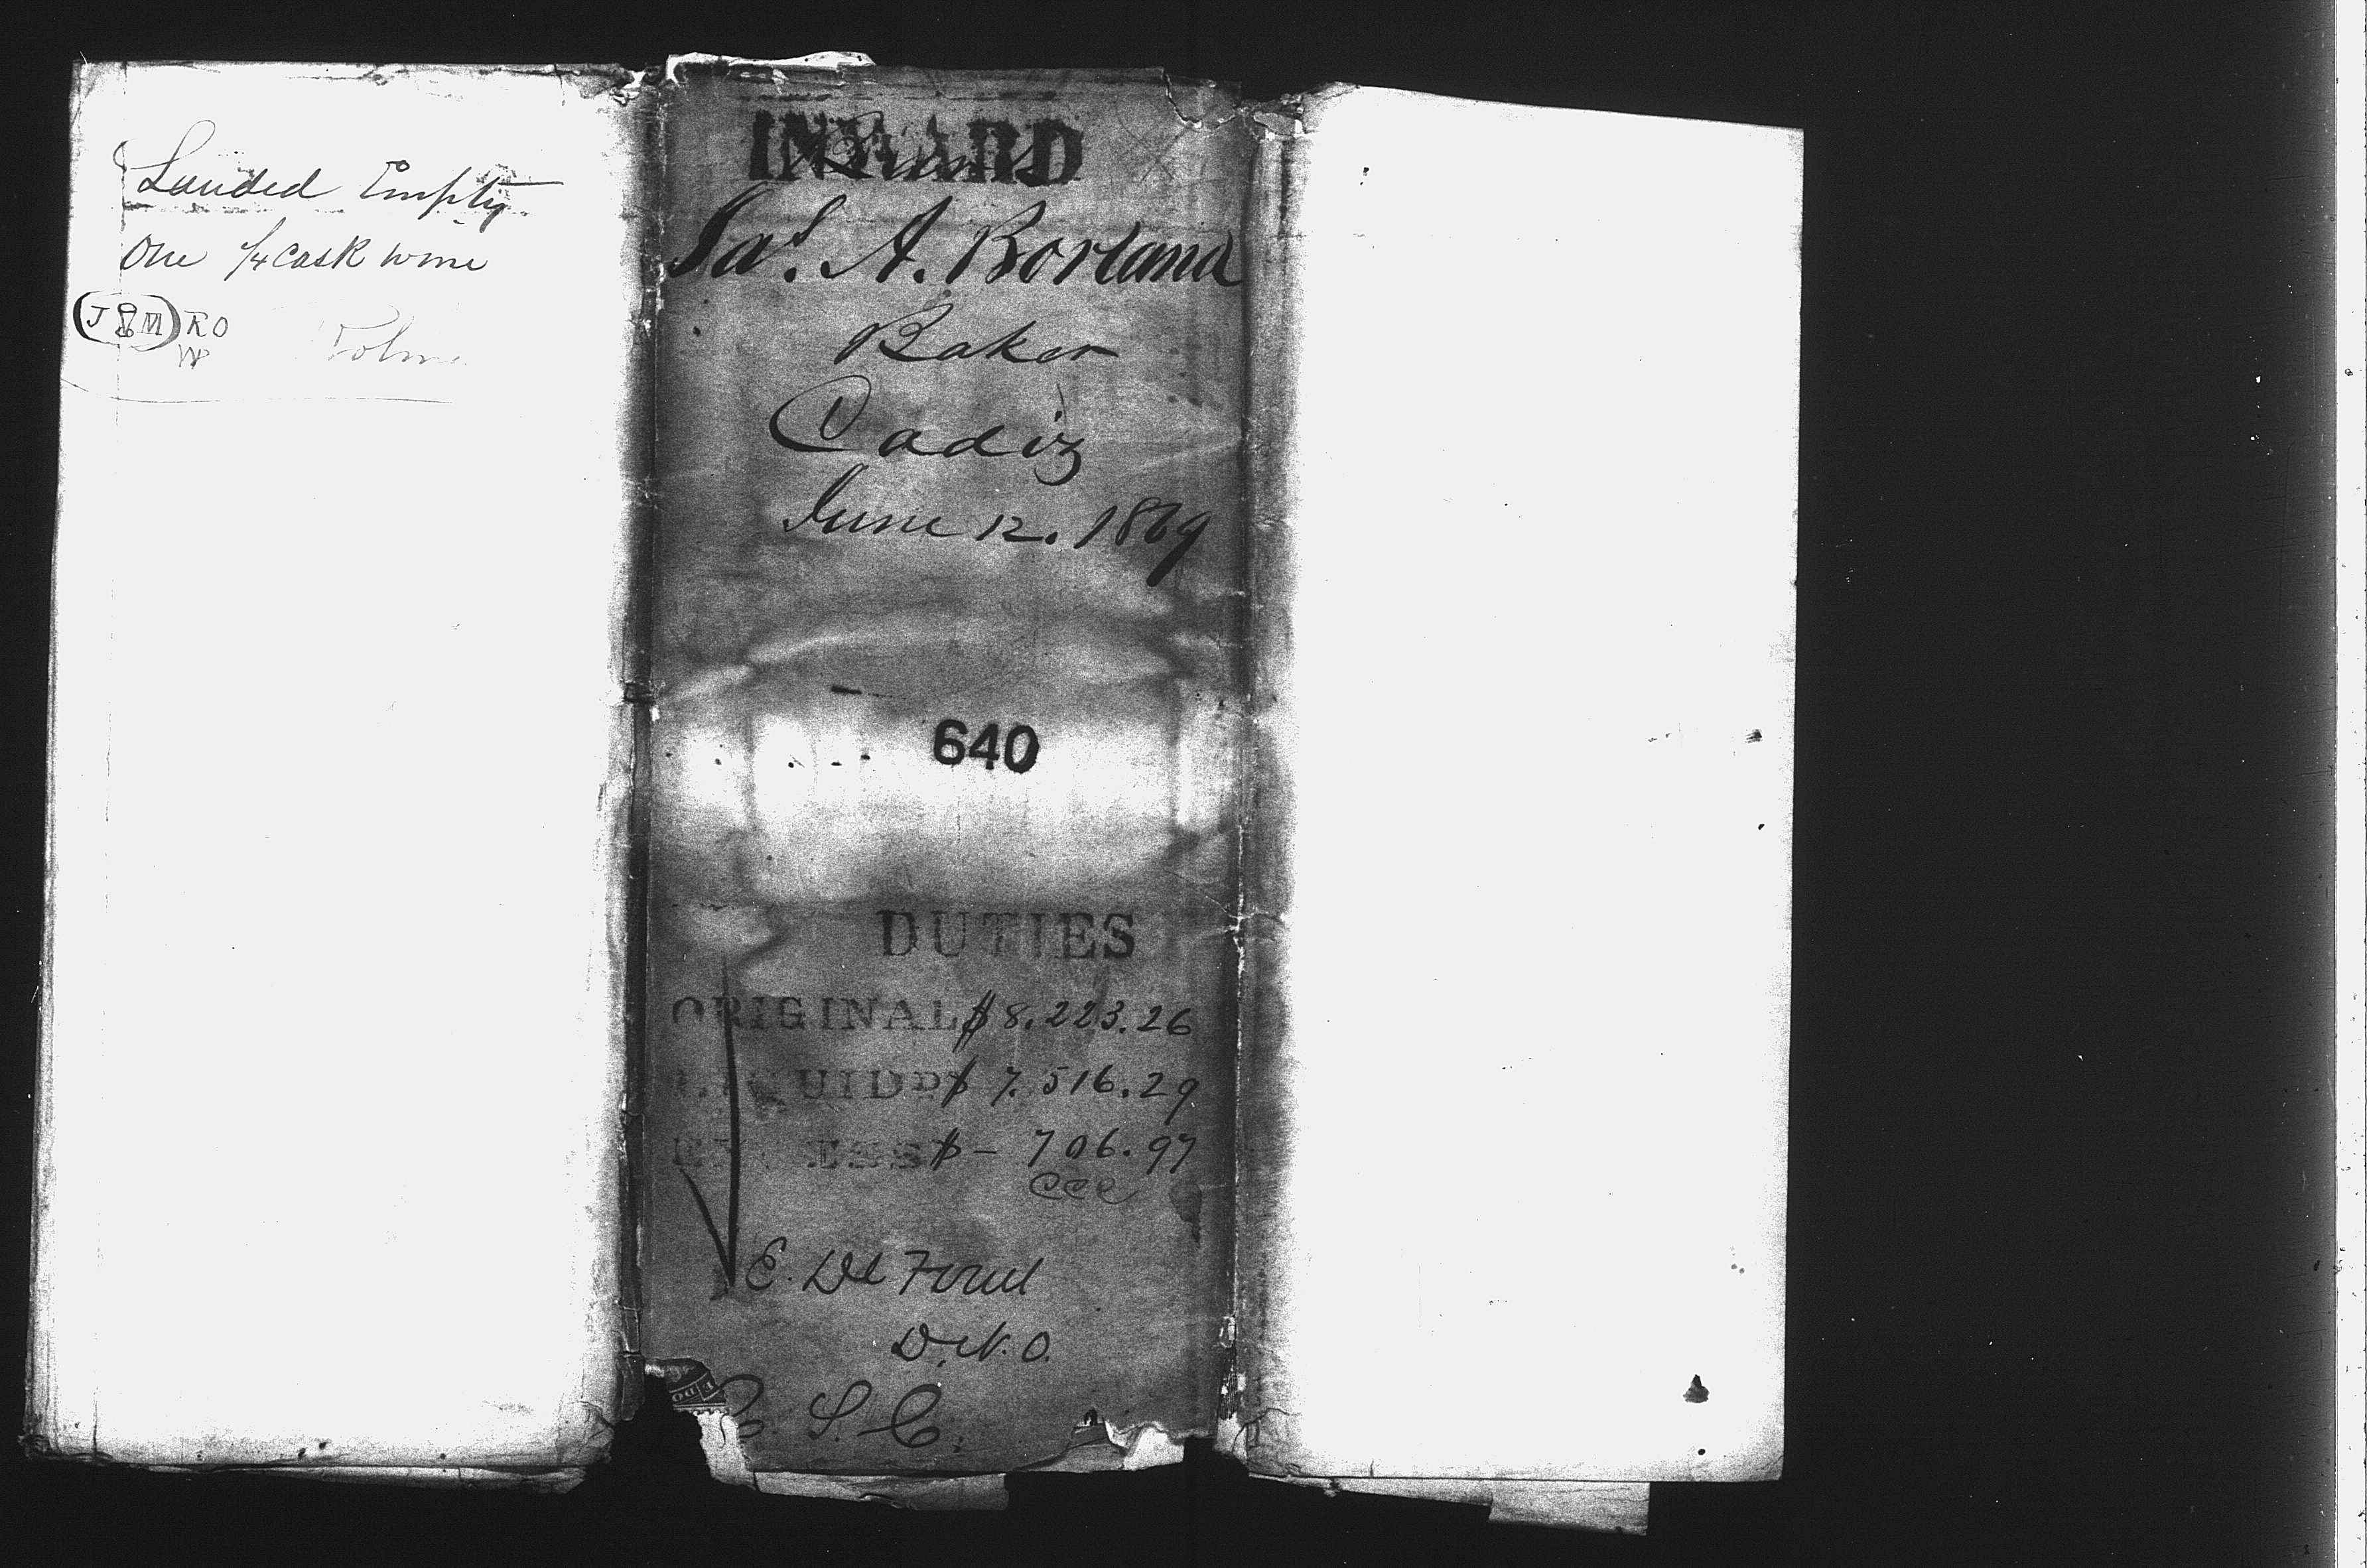 Landed Empty
One 1/4 cask wine
J M RO
INWARD
Jas. A. Borland
Baker
Cadiz
June 12. 1869
640
DUTIES
ORIGINAL $ 8.223.26
$ 7.516.29
$ - 706.97
E. De Ford
D. N. O.
S. C.